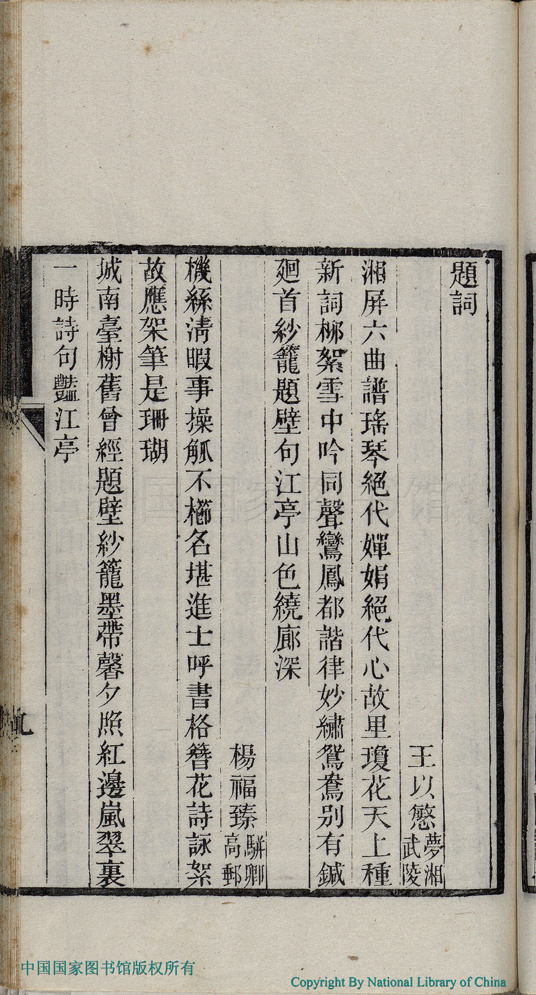 題詞
王以慜夢湘武陵
湘屏六曲譜瑤琴絕代嬋娟絕代心故里瓊花天上種
新詞柳絮雪中吟同聲鸞鳳都諧律妙繡鴛鴦別有鍼
廻首紗籠題壁句江亭山色繞廊深
楊福臻駢卿高郵
機絲清暇事操觚不櫛名堪進士呼書格簪花詩詠絮
故應架筆是珊瑚
城南臺榭舊曾經題壁紗籠墨帶馨夕照紅邊嵐翠裏
一時詩句豔江亭
中国国家图书馆版权所有
Copyright By National Library of China